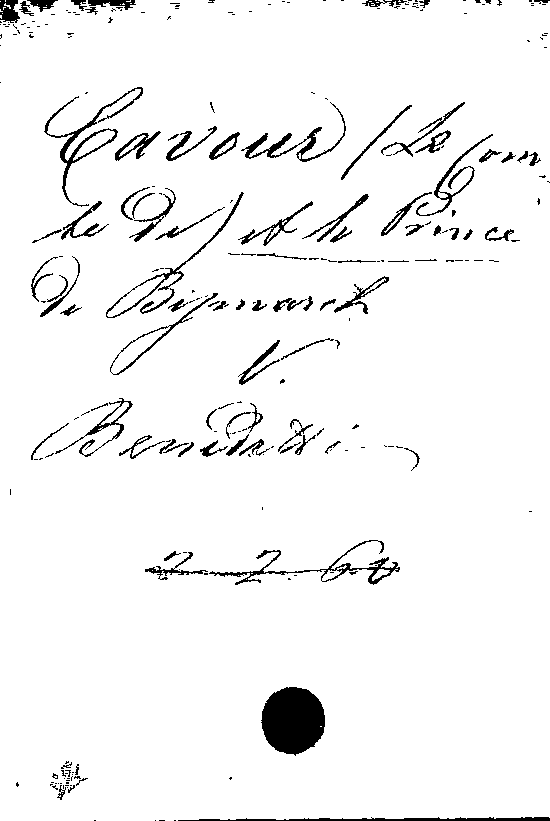 Cavour (Le Com
te de) et le Prince
de Bismarck
V.
Benedetti
2 2 60